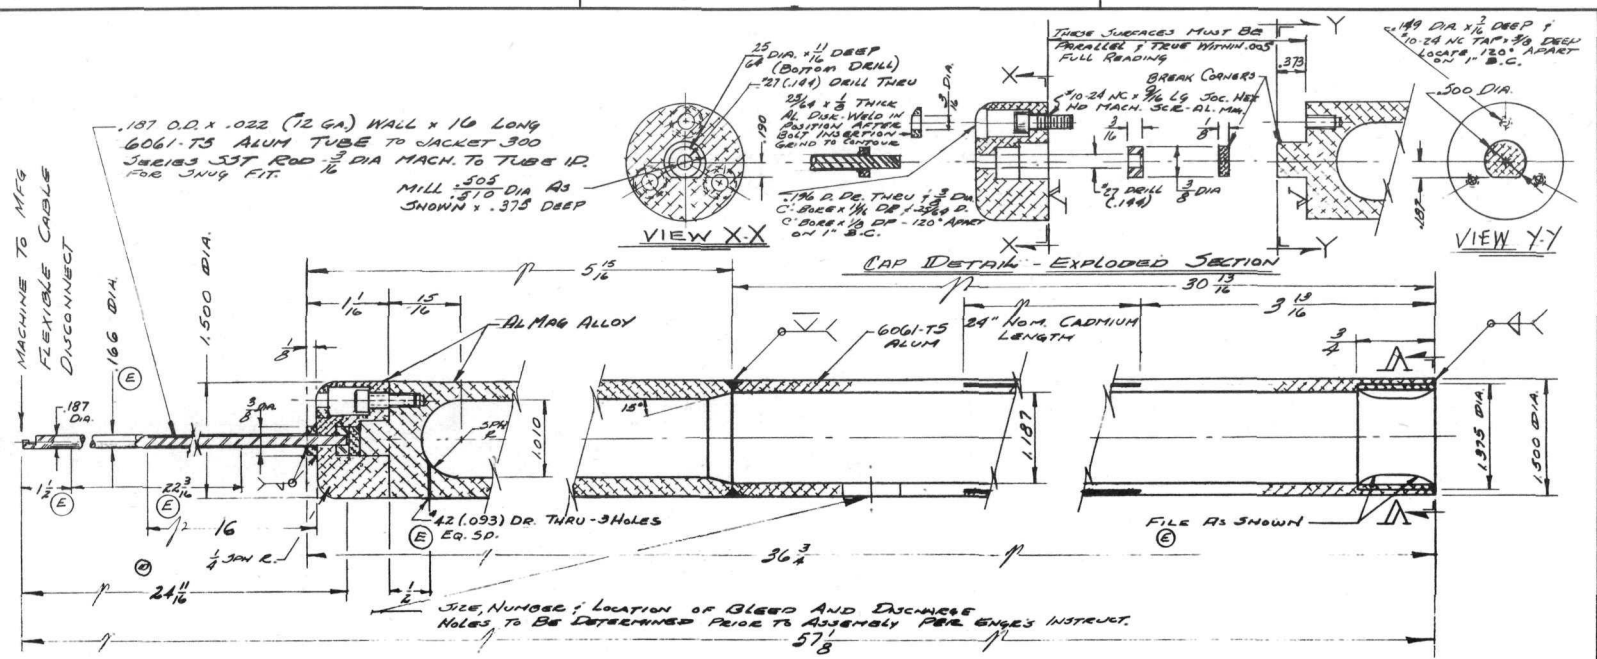 .187 O.D. x .022 (#12 GA.) WALL x 16 LONG
6061-T5 ALUM TUBE TO JACKET 300
SERIES SST ROD - 3/16 DIA MACH. TO TUBE I.D.
FOR SNUG FIT.
MACHINE TO MFG
FLEXIBLE CABLE
DISCONNECT
25/64 DIA. x 11/16 DEEP
(BOTTOM DRILL)
#27 (.144) DRILL THRU
25/64 x 1/8 THICK
AL DISK-WELD IN
POSITION AFTER
BOLT INSERTION
GRIND TO CONTOUR
MILL .505/.510 DIA AS
SHOWN x .375 DEEP
.190
3/16 DIA.
VIEW X-X
.196 D. DR. THRU; 3/8 DIA
C'BORE x 11/16 DP; 25/64 D.
C'BORE x 1/8 DP - 120° APART
ON 1" B.C.
X
X
THESE SURFACES MUST BE
PARALLEL & TRUE WITHIN .005
FULL READING
BREAK CORNERS
#10-24 NC x 9/16 LG SOC. HEX
HD MACH. SCR-AL. MAG.
3/16
1/8
#27 DRILL
(.144)
3/8 DIA
.373
Y
Y
.149 DIA x 7/16 DEEP &
#10-24 NC TAP x 3/8 DEEP
LOCATE 120° APART
ON 1" B.C.
.500 DIA.
.187
VIEW Y-Y
CAP DETAIL - EXPLODED SECTION
5 15/16
30 13/16
1 1/16
15/16
AL MAG ALLOY
6061-T5
ALUM
24" NOM. CADMIUM
LENGTH
3 13/16
3/4
1/8
.166 DIA.
E
1.500 DIA.
.187
DIA.
3/8 DIA
SPH
R
1.010
15°
1.187
1.375 DIA.
1.500 DIA.
1 1/2
E
22 3/16
E
16
1/4 SPH R.
#42 (.093) DR. THRU - 3 HOLES
EQ. SP.
E
FILE AS SHOWN
E
36 3/4
24 11/16
1/2
SIZE, NUMBER & LOCATION OF BLEED AND DISCHARGE
HOLES TO BE DETERMINED PRIOR TO ASSEMBLY PER ENGR'S INSTRUCT.
57 1/8